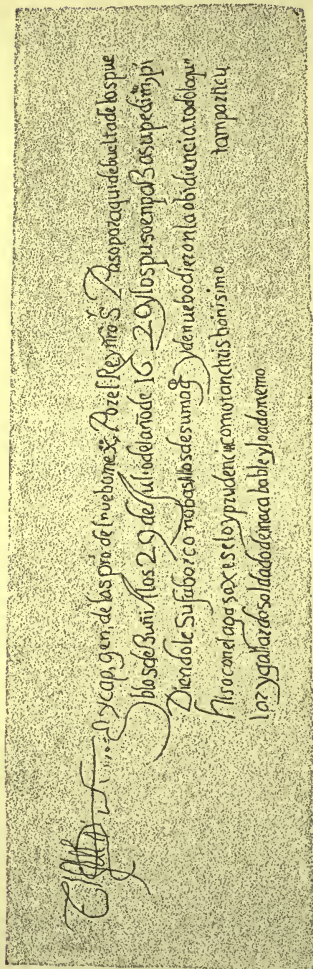 y cap. gen. de las pro. del nuebo mex. Por el Rey nro Sr. Paso por aqui de buelta de los pue
blos de Zuñi a los 29 de Julio del año de 1629 y los puso en paz a su pedimto pi
Diendole su fabor como basallos de su magd y de nuebo dieron la obidiencia todo lo qu
hiso con el agasaxe selo y prudencia como tan christianisimo tam particu
lar y gallardo soldado de inacabable y loada memo